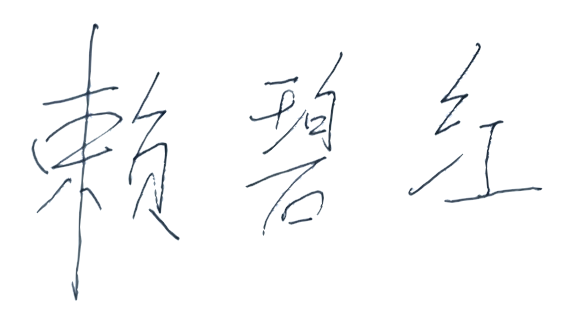 赖碧红